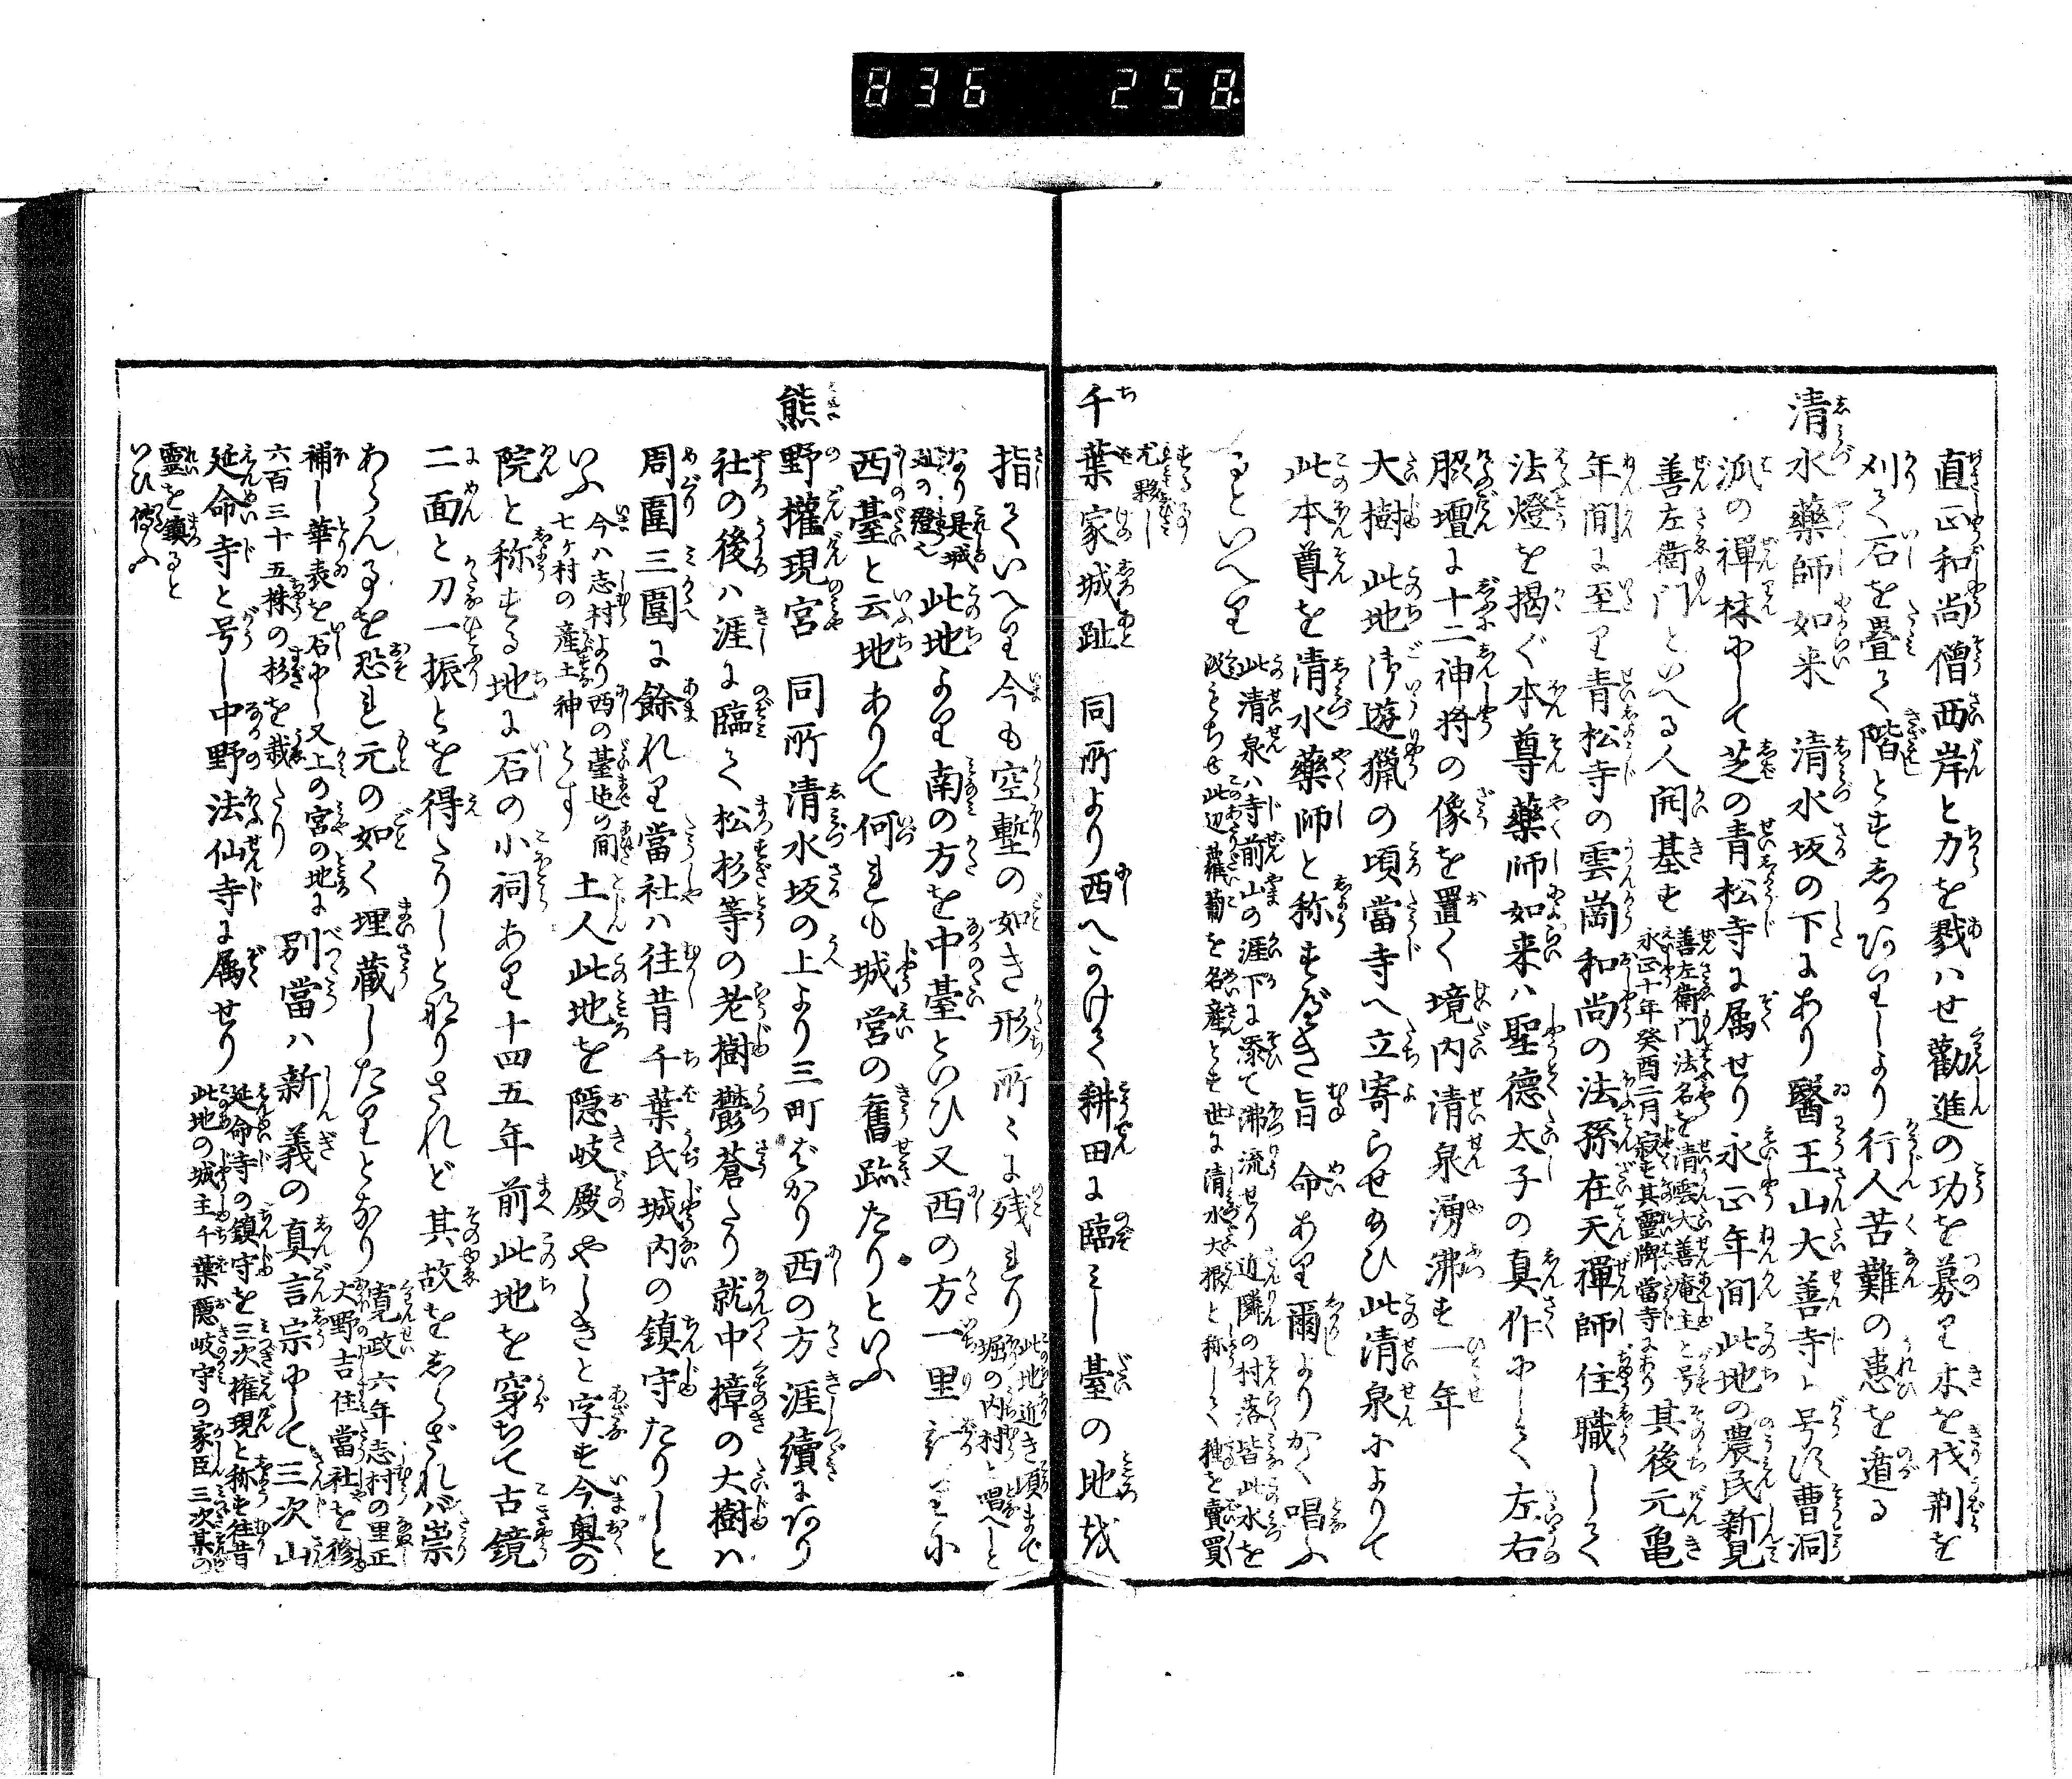 836 258.
直正和尚僧西岸と力を戮ハせ勸進の功を募り木を伐荊を
刈て石を畳て階とすしかありしより行人苦難の患を遁る
清水藥師如来 清水坂の下にあり醫王山大善寺と号す曹洞
派の禪林にして芝の青松寺に属せり永正年間此地の農民新見
善左衛門といへる人開基す
善左衛門法名を清雲大善庵主と号
永正十年癸酉二月寂す其靈牌當寺にあり
其後元亀
年間に至り青松寺の雲崗和尚の法孫在天禪師住職して
法燈を揭ぐ本尊藥師如来ハ聖德太子の真作にして左右
脇壇に十二神将の像を置く境内清泉湧沸す一年
大樹此地御遊獵の頃當寺へ立寄らせ給ひ此清泉によりて
此本尊を清水藥師と称すべき旨 命あり爾よりかく唱ふ
るといへり
此清泉ハ寺前山の涯下に添て沸流せり近隣の村落皆此水を
汲もちゆ此辺蘿蔔を名産とす世に清水大根と称して種を賣買
尤夥し
千葉家城趾 同所より西へかけて耕田に臨みし臺の地を
指ていへり今も空塹の如き形所々に残れり
此地近き頃まで
堀の内村と唱へしと
なり是城
趾の證也
此地より南の方を中臺といひ又西の方一里許に
西臺と云地ありて何れも城営の舊跡たりといふ
熊野權現宮 同所清水坂の上より三町ばかり西の方涯續にあり
社の後ハ涯に臨て松杉等の老樹鬱蒼たり就中樟の大樹ハ
周圍三圍に餘れり當社ハ往昔千葉氏城内の鎮守たりしと
いふ
今ハ志村より西の臺迠の間
七ヶ村の産土神とす
土人此地を隠岐殿やしきと字す今奥の
院と称する地に石の小祠あり十四五年前此地を穿ちて古鏡
二面と刀一振とを得たりしとなりされど其故をしらざれバ祟
あらんことを恐れ元の如く埋藏したりとなり
寛政六年志村の里正
大野吉住當社を修
補し華表を石にし又上の宮の地に
六百三十五株の杉を栽たり
別當ハ新義の真言宗にして三次山
延命寺と号し中野法仙寺に属せり
延命寺の鎮守を三次権現と称す往昔
此地の城主千葉隠岐守の家臣三次某の
靈を鎮ると
いひ傳ふ